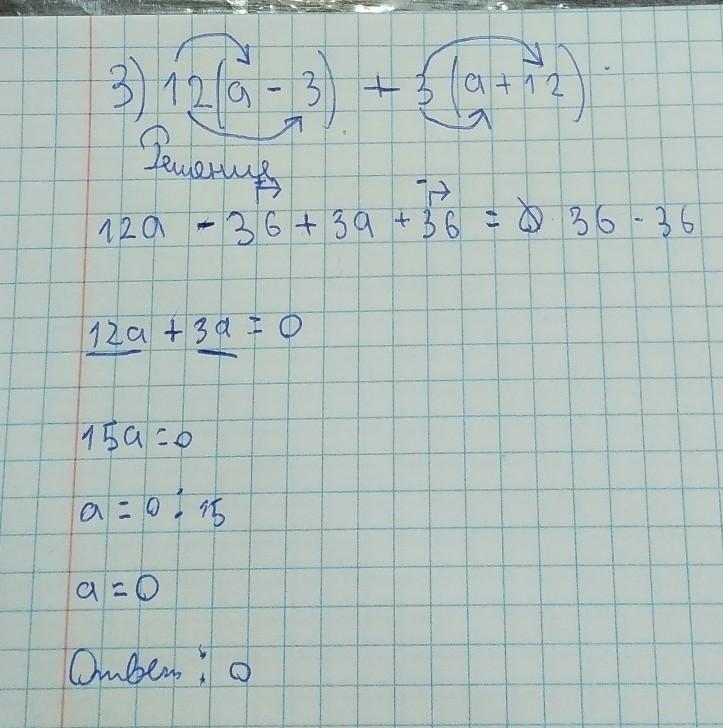 3) 12(a - 3) + 3(a + 12)
Решения
12a - 36 + 3a + 36 = 36 - 36
12a + 3a = 0
15a = 0
a = 0 : 15
a = 0
Ответ : 0